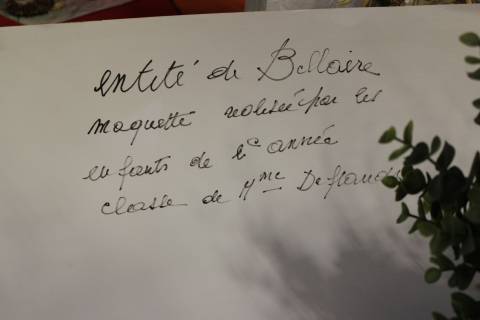 entité de Bellaire
maquette réalisée par les
enfants de 2e année
classe de Mme